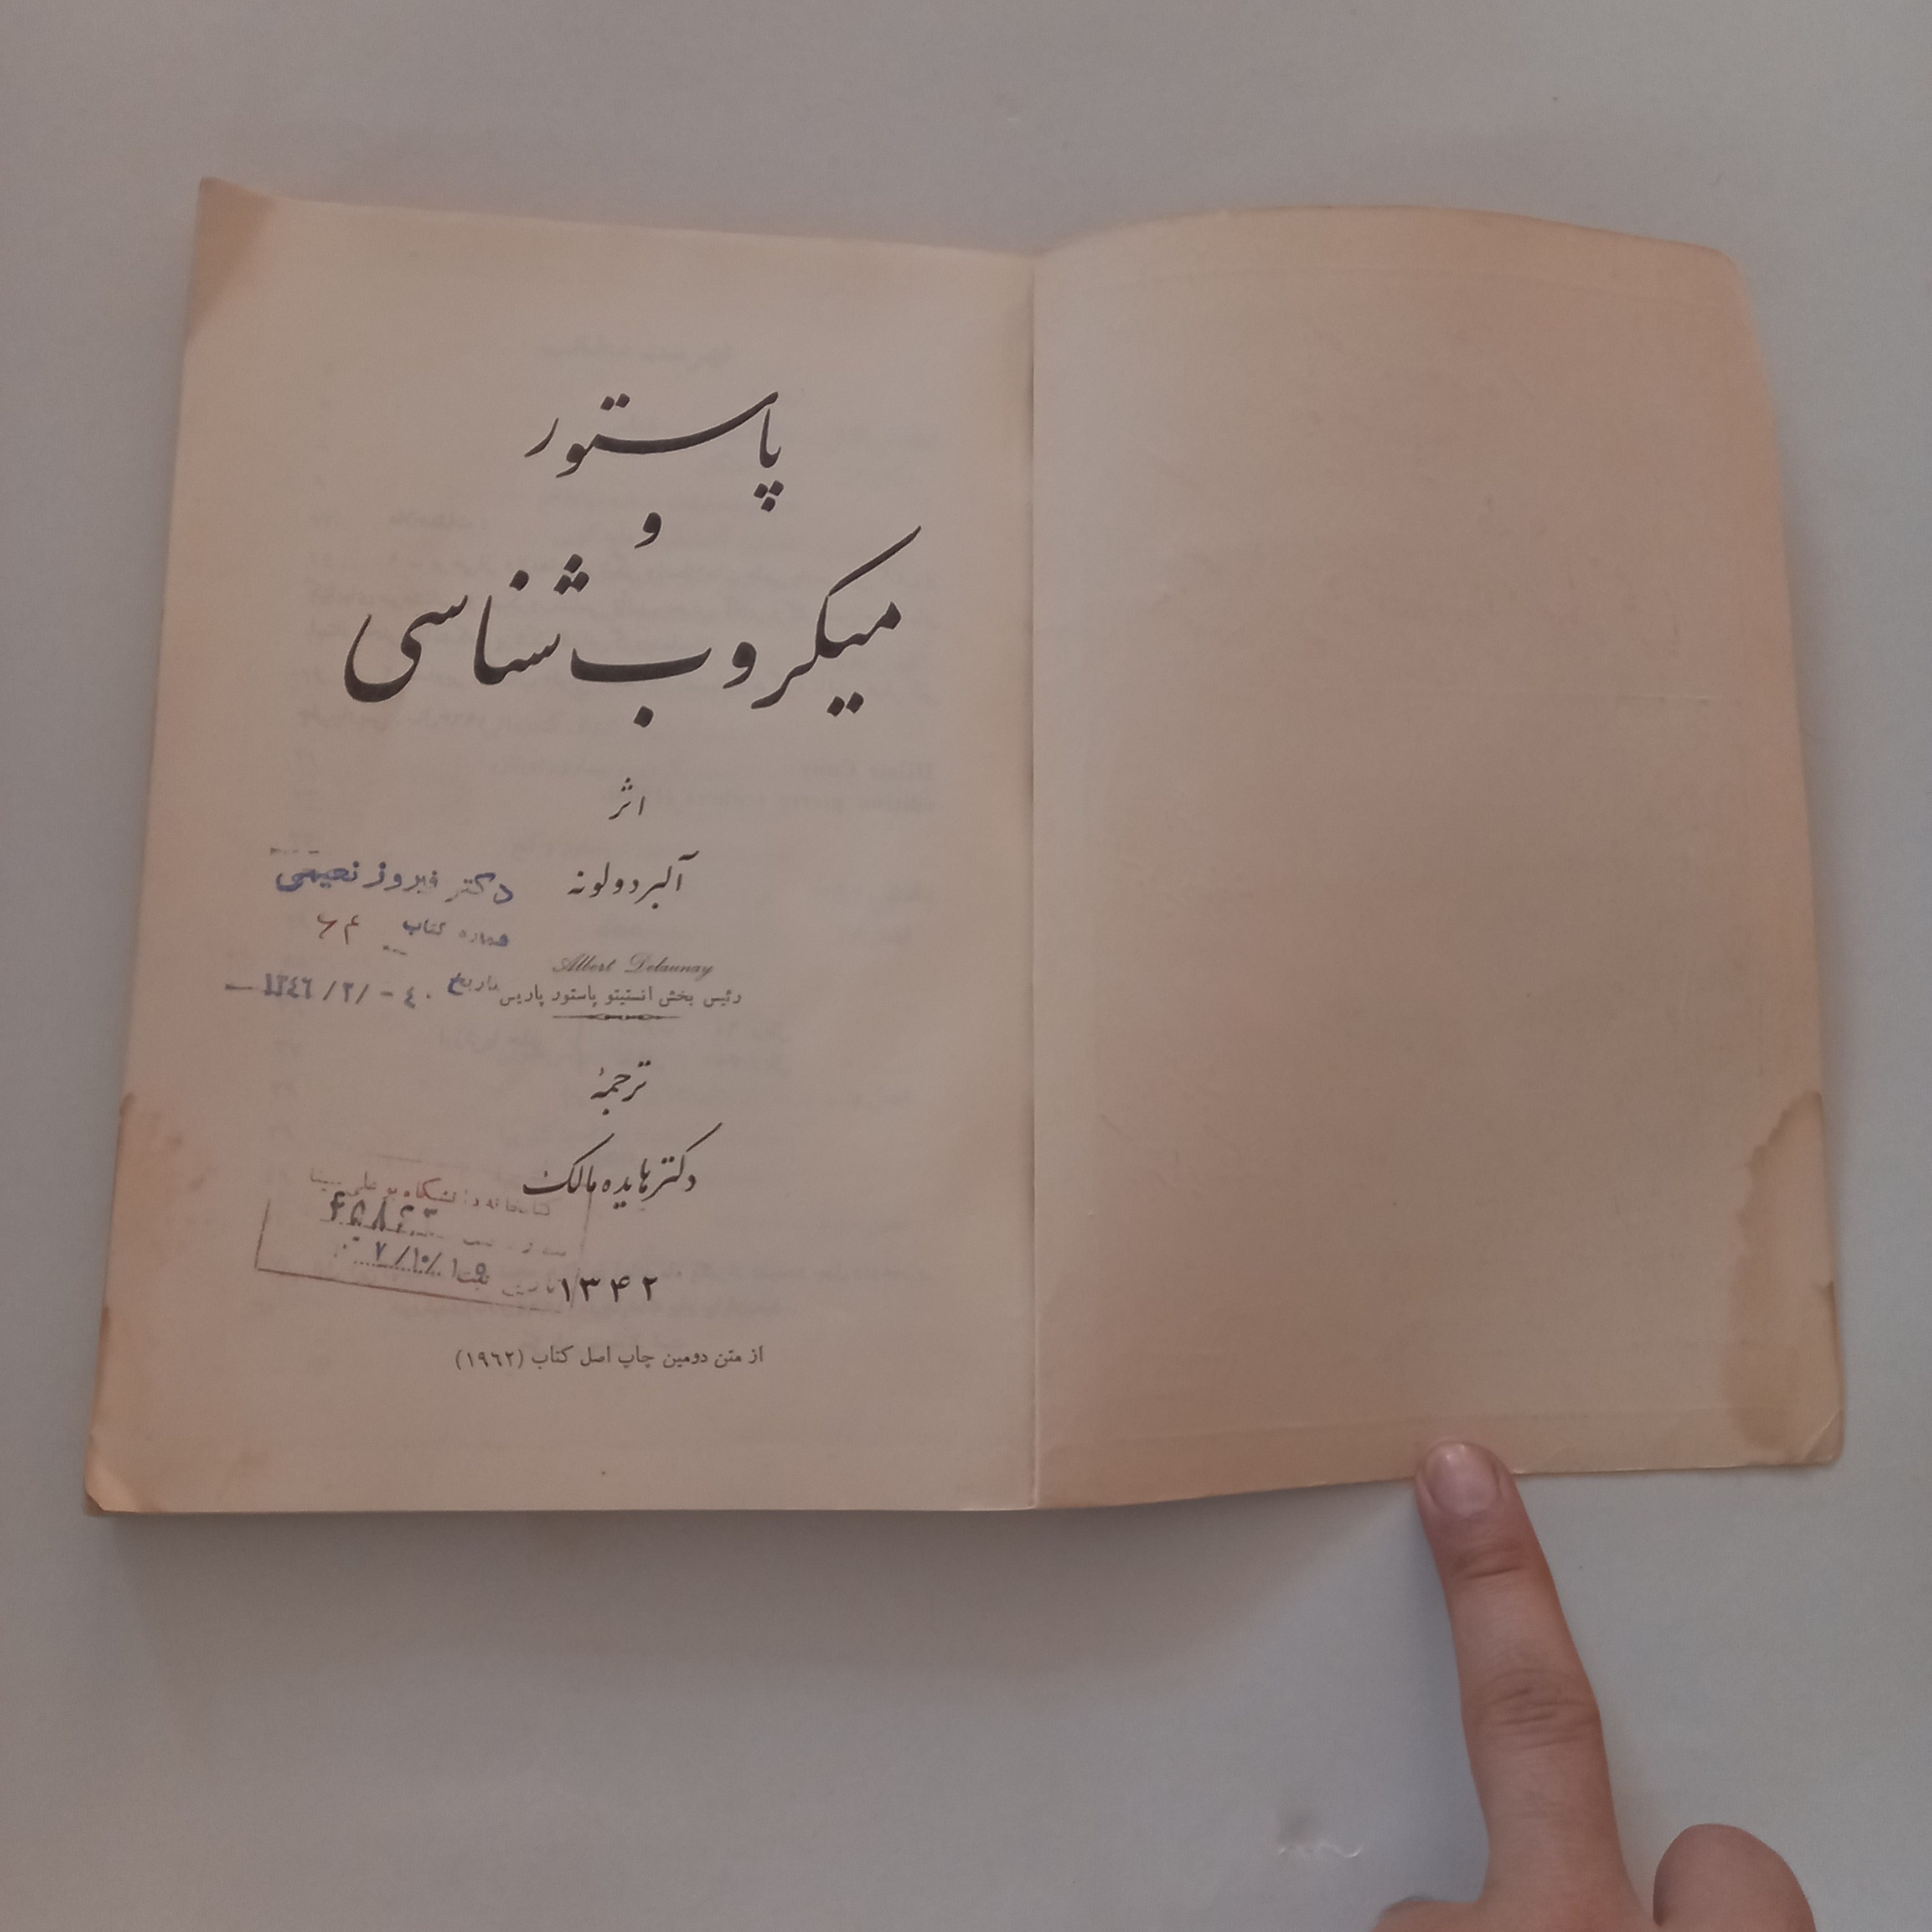 پاستور
و
میکروب شناسی
اثر
آلبر دولونه
دکتر فیروز نعیمی
شماره کتاب
Albert Delaunay
رئیس بخش انستیتو پاستور پاریس
تاریخ
ترجمهٔ
دکتر هایده مالک
کتابخانه دانشگاه بوعلی سینا
تاریخ ثبت
۱۳۴۲
از متن دومین چاپ اصل کتاب (۱۹٦۲)